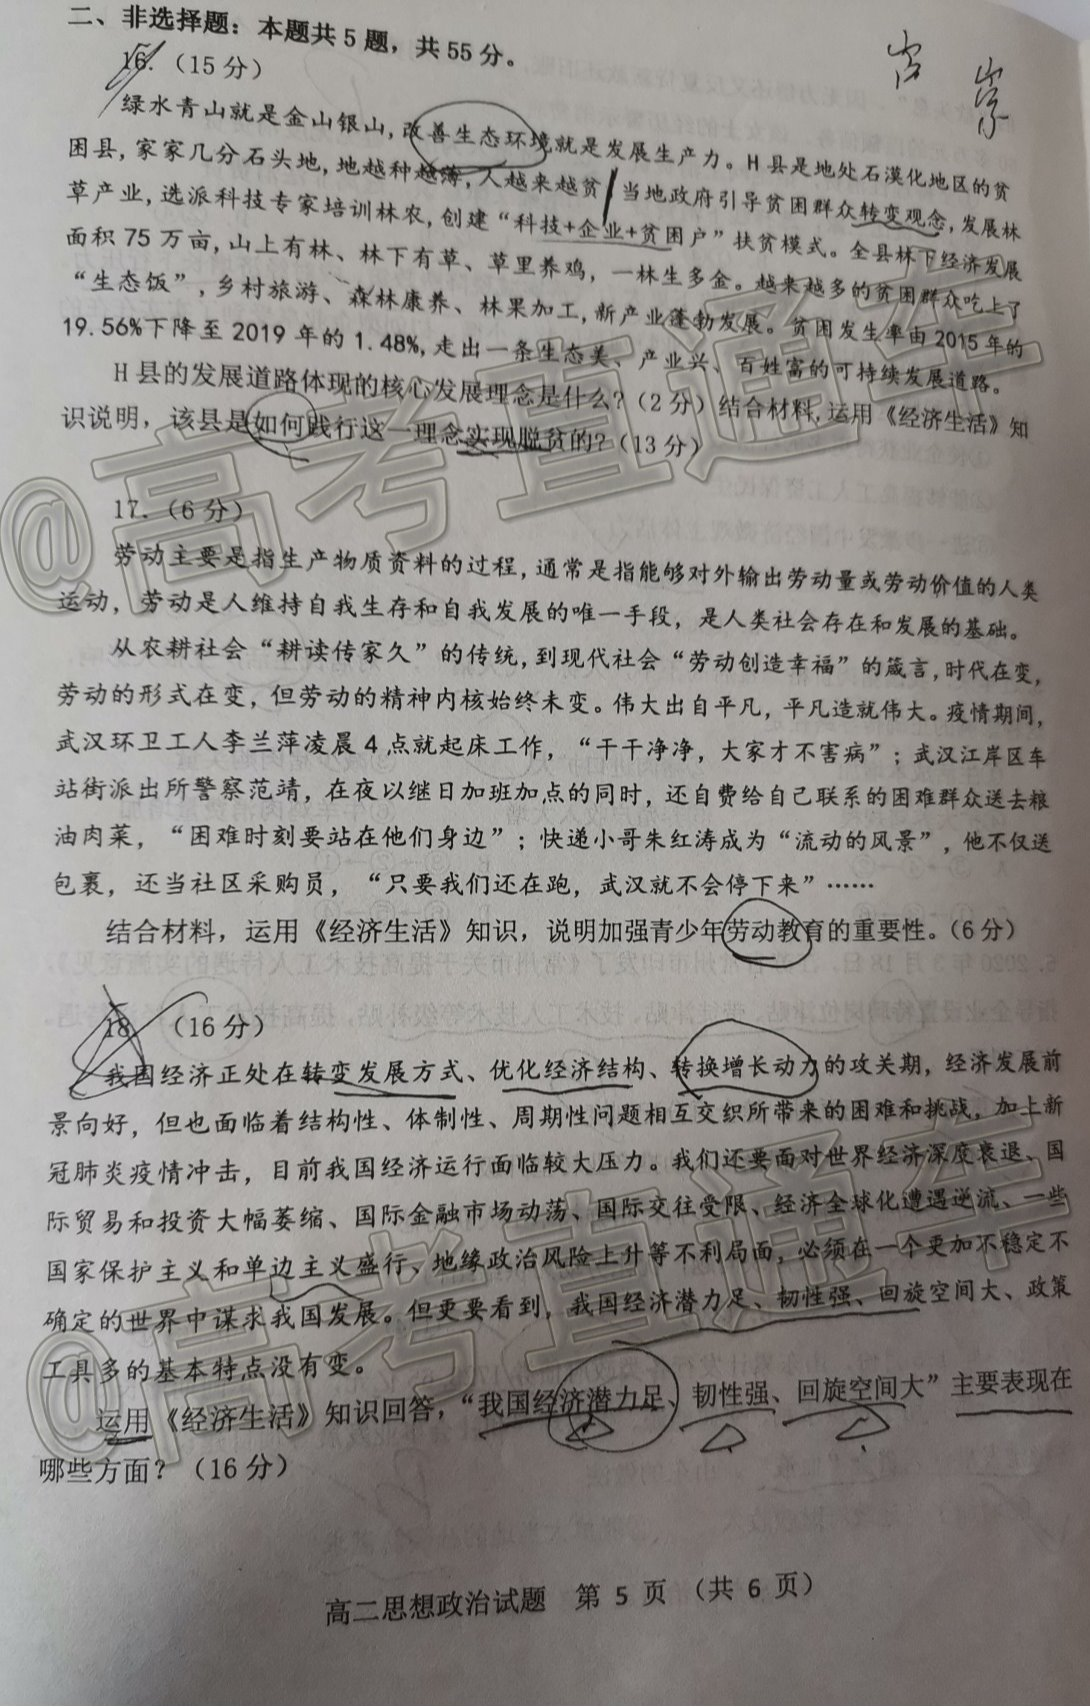 二、非选择题：本题共5题，共55分。
16.（15分）
绿水青山就是金山银山，改善生态环境就是发展生产力。H县是地处石漠化地区的贫
困县，家家几分石头地，地越种越薄，人越来越贫。当地政府引导贫困群众转变观念，发展林
草产业，选派科技专家培训林农，创建“科技+企业+贫困户”扶贫模式。全县林下经济发展
面积75万亩，山上有林、林下有草、草里养鸡，一林生多金。越来越多的贫困群众吃上了
“生态饭”，乡村旅游、森林康养、林果加工，新产业蓬勃发展。贫困发生率由2015年的
19.56%下降至2019年的1.48%，走出一条生态美、产业兴、百姓富的可持续发展道路。
H县的发展道路体现的核心发展理念是什么？（2分）结合材料，运用《经济生活》知
识说明，该县是如何践行这一理念实现脱贫的？（13分）
17.（6分）
劳动主要是指生产物质资料的过程，通常是指能够对外输出劳动量或劳动价值的人类
运动，劳动是人维持自我生存和自我发展的唯一手段，是人类社会存在和发展的基础。
从农耕社会“耕读传家久”的传统，到现代社会“劳动创造幸福”的箴言，时代在变，
劳动的形式在变，但劳动的精神内核始终未变。伟大出自平凡，平凡造就伟大。疫情期间，
武汉环卫工人李兰萍凌晨4点就起床工作，“干干净净，大家才不害病”；武汉江岸区车
站街派出所警察范靖，在夜以继日加班加点的同时，还自费给自己联系的困难群众送去粮
油肉菜，“困难时刻要站在他们身边”；快递小哥朱红涛成为“流动的风景”，他不仅送
包裹，还当社区采购员，“只要我们还在跑，武汉就不会停下来”……
结合材料，运用《经济生活》知识，说明加强青少年劳动教育的重要性。（6分）
18.（16分）
我国经济正处在转变发展方式、优化经济结构、转换增长动力的攻关期，经济发展前
景向好，但也面临着结构性、体制性、周期性问题相互交织所带来的困难和挑战，加上新
冠肺炎疫情冲击，目前我国经济运行面临较大压力。我们还要面对世界经济深度衰退、国
际贸易和投资大幅萎缩、国际金融市场动荡、国际交往受限、经济全球化遭遇逆流、一些
国家保护主义和单边主义盛行、地缘政治风险上升等不利局面，必须在一个更加不稳定不
确定的世界中谋求我国发展。但更要看到，我国经济潜力足、韧性强、回旋空间大、政策
工具多的基本特点没有变。
运用《经济生活》知识回答，“我国经济潜力足、韧性强、回旋空间大”主要表现在
哪些方面？（16分）
高二思想政治试题 第5页（共6页）
@高考直通车
@高考直通车